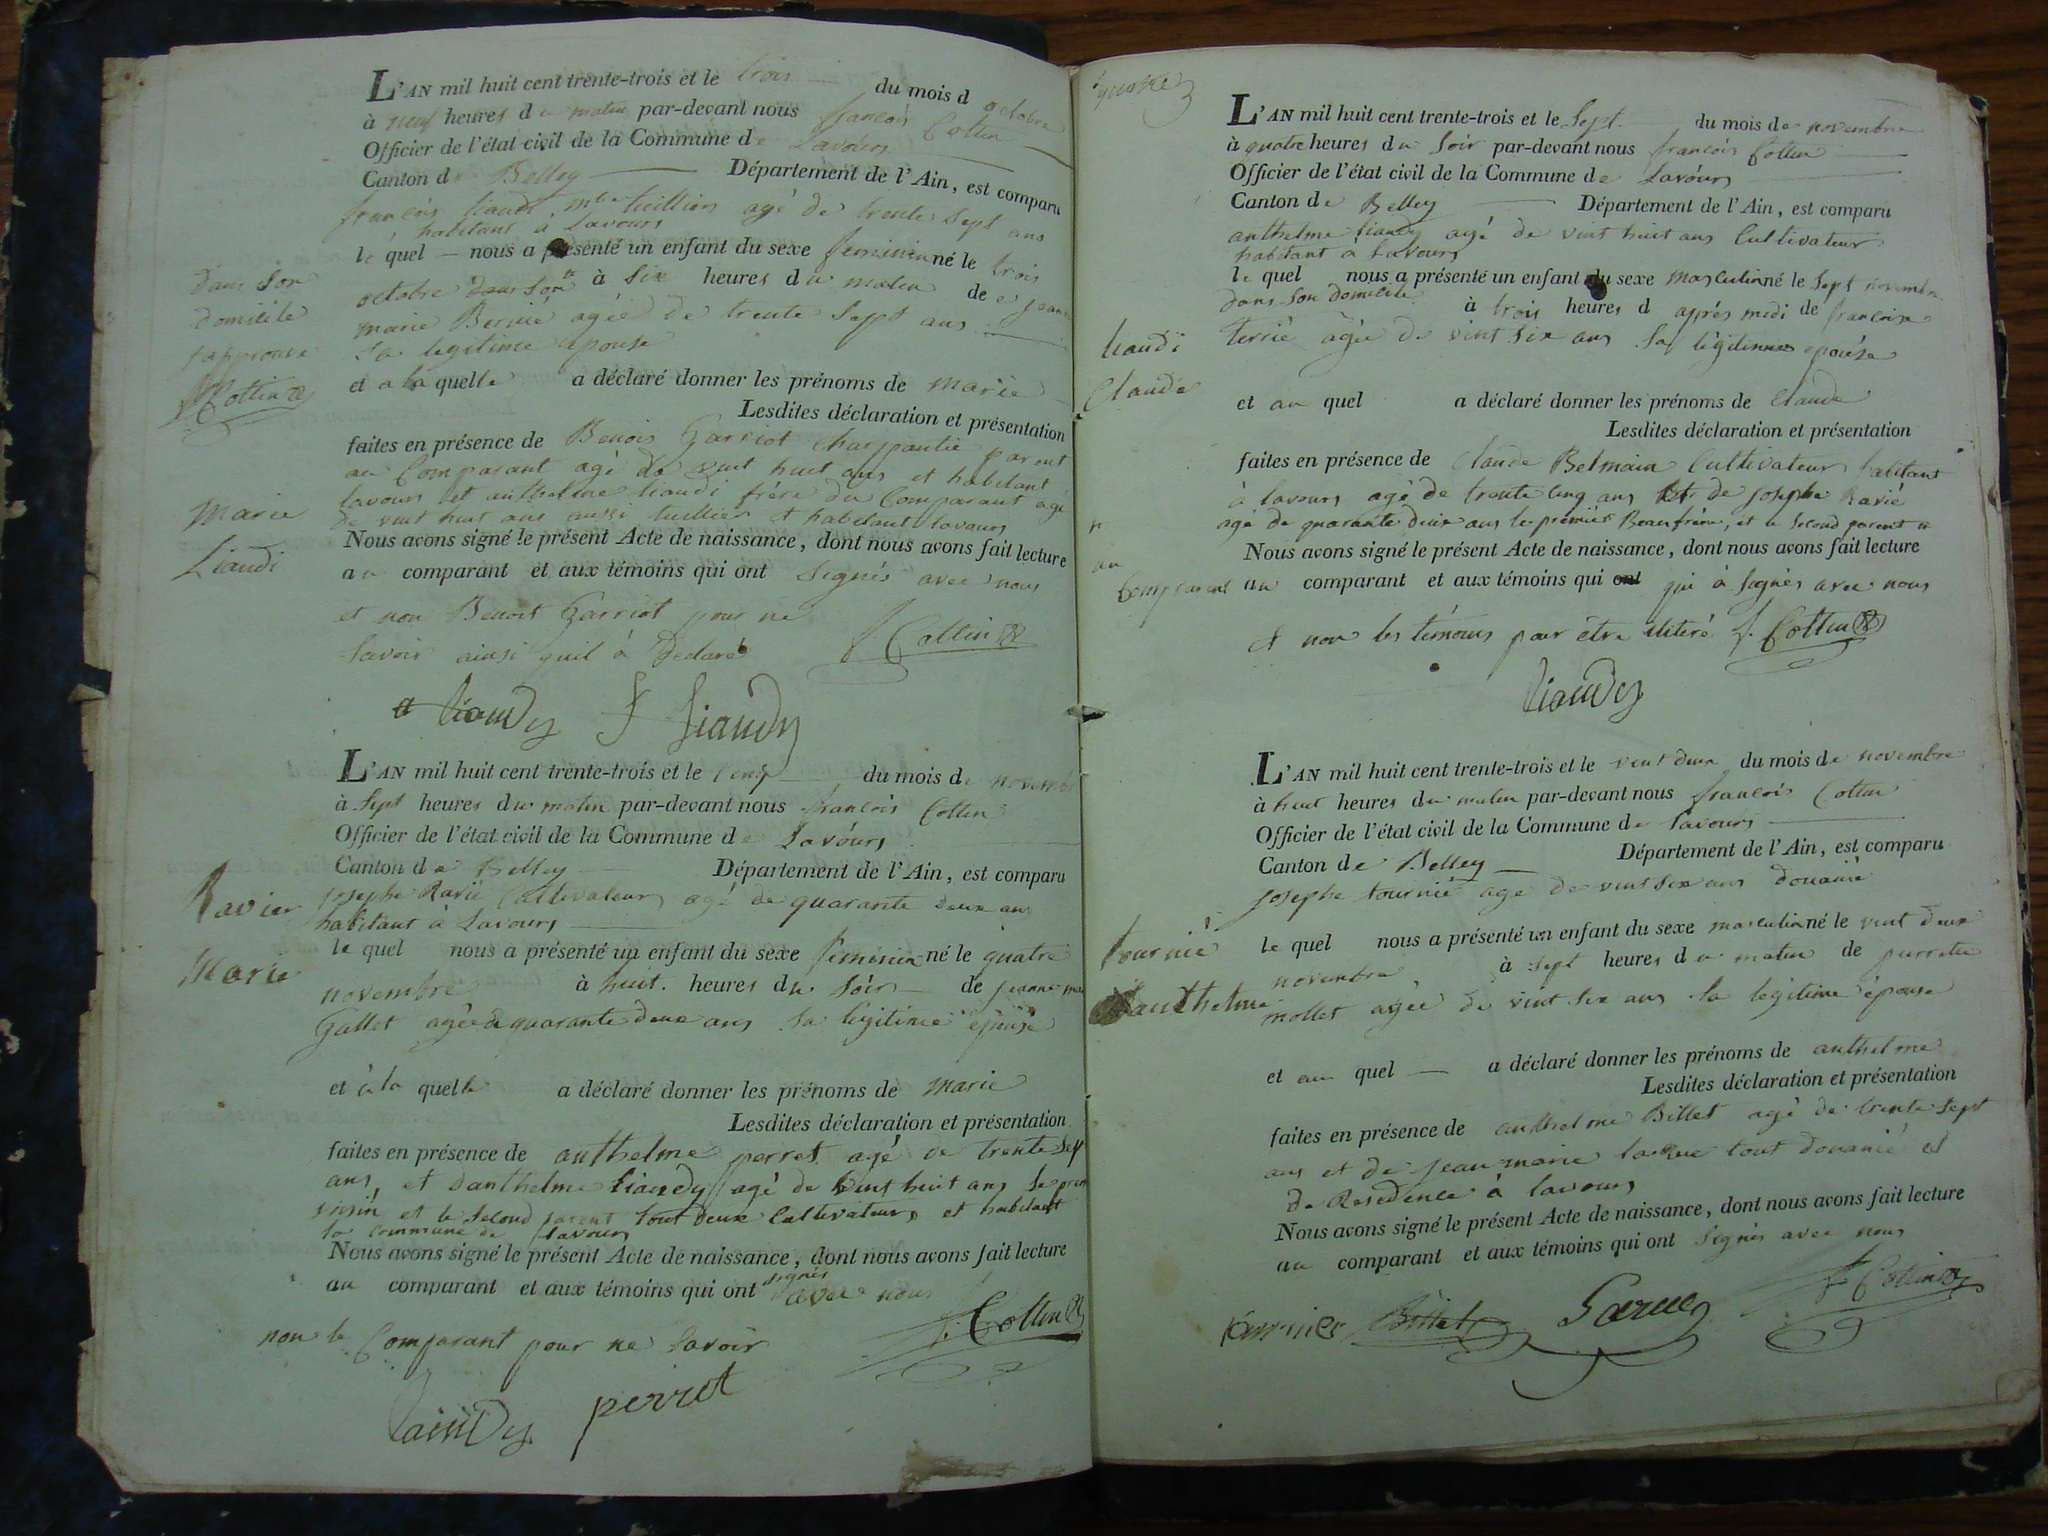 L'AN mil huit cent trente-trois et le trois du mois d octobre
à neuf heures du matin par-devant nous françois Cottin
Officier de l'état civil de la Commune de Lavours
Canton de Belley Département de l'Ain, est comparu
françois liaudi tuillier agé de trente sept ans
habitant à Lavours
le quel nous a présenté un enfant du sexe feminin né le trois
octobre dans son à six heures du matin de jeanne
marie agée de trente sept ans
sa legitime épouse
et a la quelle a déclaré donner les prénoms de marie
Lesdites déclaration et présentation
faites en présence de Benois Garriot charpantié parent
au Comparant agé de vint huit ans et habitant
lavours et anthelme liaudi frère du Comparant agé
de vint huit ans aussi tuillier et habitant lavours
Nous avons signé le présent Acte de naissance, dont nous avons fait lecture
au comparant et aux témoins qui ont signés avec nous
et non Benoit Garriot pour ne
savoir ainsi quil à Declaré f. Cottin
liaudy f liaudy
dans son
domicile
japprouve
f Cottin
Marie
Liaudi
L'AN mil huit cent trente-trois et le cinq du mois de novembre
à sept heures du matin par-devant nous françois Cottin
Officier de l'état civil de la Commune de Lavours
Canton de Belley Département de l'Ain, est comparu
josephe Ravié Cultivateur agé de quarante deux ans
habitant à Lavours
le quel nous a présenté un enfant du sexe féminin né le quatre
novembre à huit heures du soir de jeanne ma
Gallet agée de quarante deux ans sa legitime épouse
et à la quelle a déclaré donner les prénoms de marie
Lesdites déclaration et présentation
faites en présence de anthelme perret agé de trente sept
ans, et danthelme liaudy agé de vint huit ans le prem
voisin et le second parent tout deux Cultivateurs et habitant
la commune de lavours
Nous avons signé le présent Acte de naissance, dont nous avons fait lecture
au comparant et aux témoins qui ont signés avec nous
non le Comparant pour ne savoir f. Cottin
liaudy perret
Ravier
Marie
L'AN mil huit cent trente-trois et le Sept du mois de novembre
à quatre heures du soir par-devant nous françois Cottin
Officier de l'état civil de la Commune de Lavours
Canton de Belley Département de l'Ain, est comparu
anthelme liaudy agé de vint huit ans Cultivateur
habitant à Lavours
le quel nous a présenté un enfant du sexe masculin né le sept novembre
dans son domicile à trois heures d après midi de françoise
terrié agée de vint six ans sa légitimes épouse
et au quel a déclaré donner les prénoms de Claude
Lesdites déclaration et présentation
faites en présence de Claude Belmain Cultivateur habitant
à lavours agé de trente cinq ans et de josephe Ravié
agé de quarante deux ans le prémier Beaufrère, et le second parent
Nous avons signé le présent Acte de naissance, dont nous avons fait lecture
au comparant et aux témoins qui ont qui à signés avec nous
et non les témoins pour être ilitéré f. Cottin
liaudy
liaudi
Claude
au
Comparant
L'AN mil huit cent trente-trois et le vint deux du mois de novembre
à huit heures du matin par-devant nous françois Cottin
Officier de l'état civil de la Commune de Lavours
Canton de Belley Département de l'Ain, est comparu
josephe tournié agé de vint six ans douanié
le quel nous a présenté un enfant du sexe masculin né le vint deux
novembre à sept heures du matin de pierrette
mollet agée de vint six ans sa legitime épouse
et au quel a déclaré donner les prénoms de anthelme
Lesdites déclaration et présentation
faites en présence de anthelme Billet agé de trente sept
ans et de jean marie larue tout douanié et
de Residence à lavours
Nous avons signé le présent Acte de naissance, dont nous avons fait lecture
au comparant et aux témoins qui ont signés avec nous
f. Cottin
tournier Billet Larue
tournié
anthelme